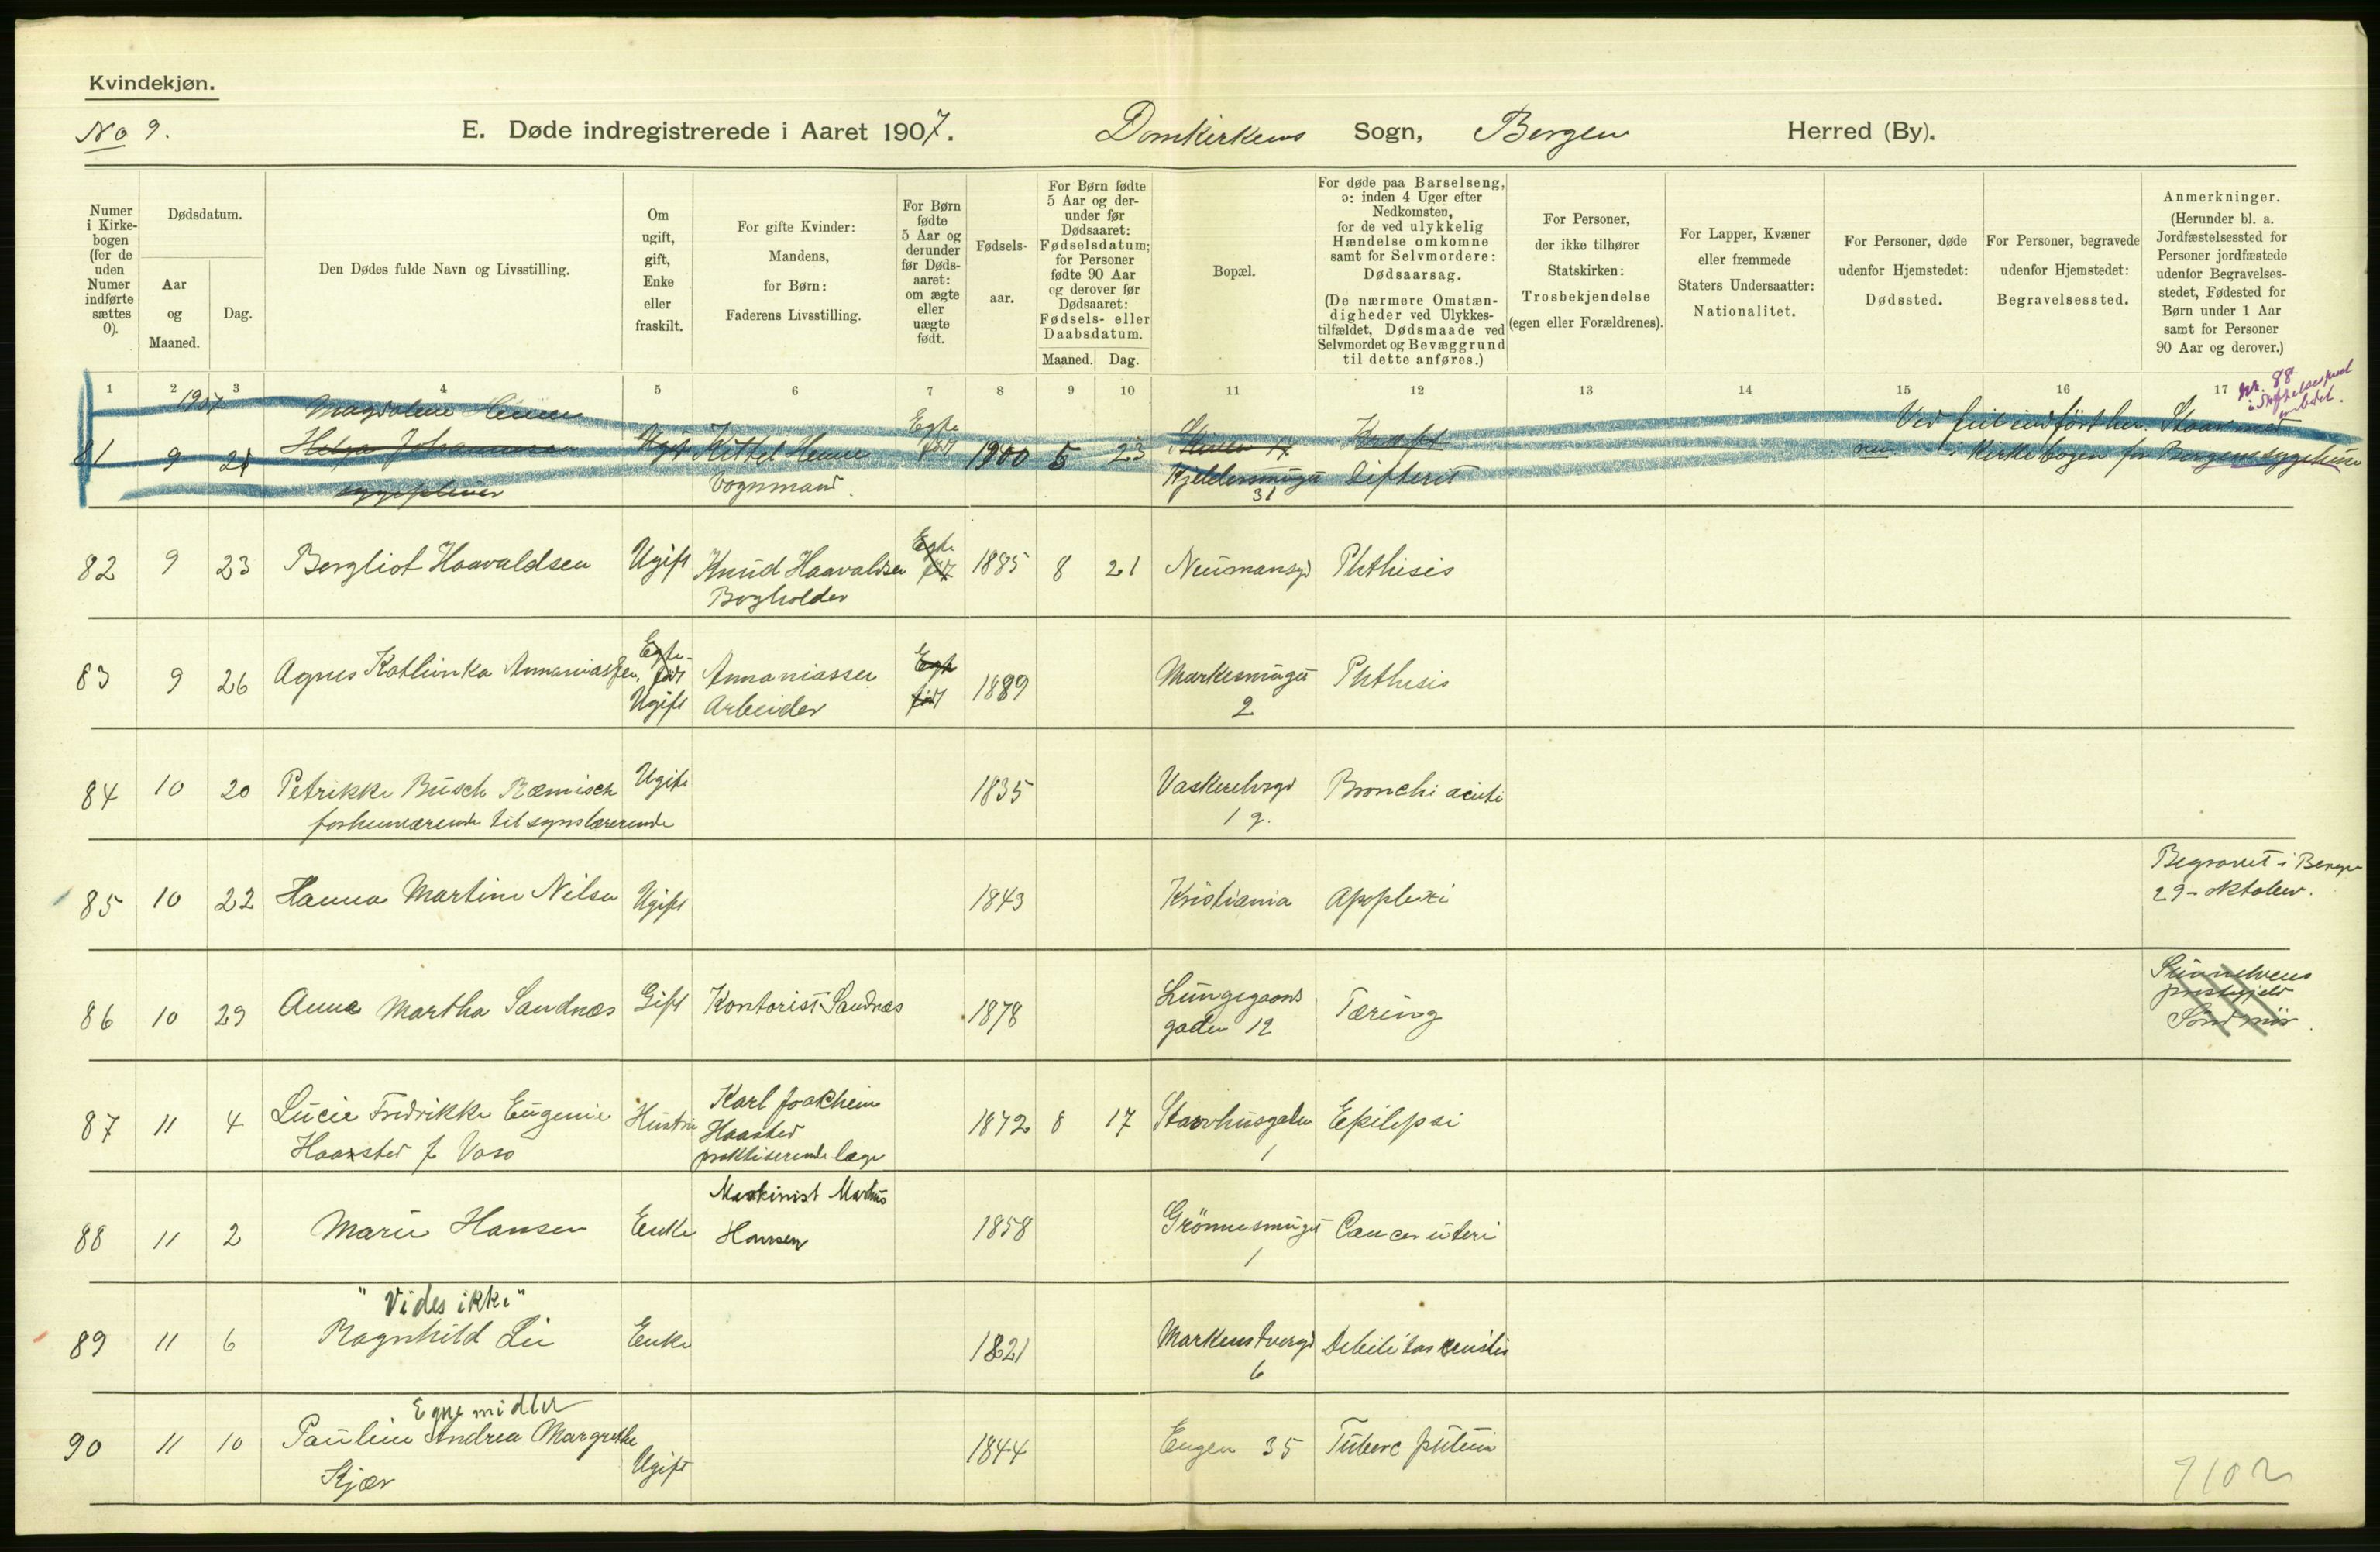 Kvindekjøn.
No 9.
E. Døde indregistrerede i Aaret 1907. Domkirkens Sogn, Bergen Herred (By).
Numer i Kirke-bogen (for de uden Numer indførte sættes 0).
Dødsdatum.
Aar og Maaned.
Dag.
Den Dødes fulde Navn og Livsstilling.
Om ugift, gift, Enke eller fraskilt.
For gifte Kvinder: Mandens, for Børn: Faderens Livsstilling.
For Børn fødte 5 Aar og derunder før Døds-aaret: om ægte eller uægte født.
Fødsels-aar.
For Børn fødte 5 Aar og der-under før Dødsaaret: Fødselsdatum; for Personer fødte 90 Aar og derover før Dødsaaret: Fødsels- eller Daabsdatum.
Maaned. Dag.
Bopæl.
For døde paa Barselseng, ɔ: inden 4 Uger efter Nedkomsten, for de ved ulykkelig Hændelse omkomne samt for Selvmordere: Dødsaarsag.
(De nærmere Omstæn-digheder ved Ulykkes-tilfældet, Dødsmaade ved Selvmordet og Bevæggrund til dette anføres.)
For Personer, der ikke tilhører Statskirken: Trosbekjendelse (egen eller Forældrenes).
For Lapper, Kvæner eller fremmede Staters Undersaatter: Nationalitet.
For Personer, døde udenfor Hjemstedet: Dødssted.
For Personer, begravede udenfor Hjemstedet: Begravelsessted.
Anmerkninger.
(Herunder bl. a. Jordfæstelsessted for Personer jordfæstede udenfor Begravelses-stedet, Fødested for Børn under 1 Aar samt for Personer 90 Aar og derover.)
1 2 3 4 5 6 7 8 9 10 11 12 13 14 15 16 17
Nr. 88
1907 Magdalene
81 9 Helga Johannesen Ugift Kittel Egte født 1900 5 23 Difterit
Vognmand. 31
Ved feil indført her. Staar med
i Kirkebogen for Bergens sygehuse
82 9 23 Bergliot Haavaldsen Ugift Knud Haavaldsen Egte født 1885 8 21 Neumansgd Phthisis
Bogholder
83 9 26 Agnes Kathinka Annaniassen, Egte født Annaniassen Egte født 1889 Markesmuget Phthisis
Ugift Arbeider 2
84 10 20 Petrikke Busch Ræmisch Ugift 1835 Bronchi acuti
forhenværende
85 10 22 Hanna Martine Nilsen Ugift 1843 Kristiania Apoplexi Begravet i Bergen
29 - oktober.
86 10 29 Anna Martha Sandnæs Gift Kontorist Sandnæs 1878 Lungegaards Tæring
gaden 12
87 11 4 Lucie Fredrikke Eugenie Hustru Karl Joakheim 1872 8 17 Epilepsi
Haarsted f. Haarsted 1
praktiserende læge
88 11 2 Marie Hansen Enke Maskinist 1858 Grönnesmuget Cancer uteri
Hansen 1
"Vides ikke"
89 11 6 Ragnhild Lie Enke 1821 Markens tvergd Debilitas senilis
6
Egne midler
90 11 10 Pauline Andrea Margrethe Ugift 1844 Engen 35 Tuberc
Kjær
7102